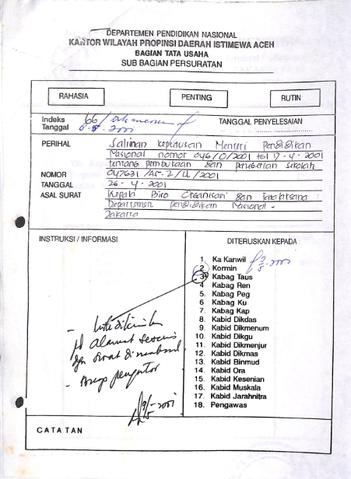 DEPARTEMEN PENDIDIKAN NASIONAL
KANTOR WILAYAH PROPINSI DAERAH ISTIMEWA ACEH
BAGIAN TATA USAHA
SUB BAGIAN PERSURATAN
RAHASIA PENTING RUTIN
Indeks 66/
Tanggal 2001
TANGGAL PENYELESAIAN
PERIHAL Salinan Keputusan Menteri Pendidikan
Nasional nomor 046/O/2001 tgl 17-4-2001
tentang pembukaan dan penegerian sekolah
NOMOR 047631/A5.2/U/2001
TANGGAL 26-4-2001
ASAL SURAT Kepala Biro Organisasi dan
Departemen Pendidikan Nasional -
Jakarta
INSTRUKSI / INFORMASI
DITERUSKAN KEPADA :
1. Ka Kanwil
2. Kormin
3. Kabag Taus
4. Kabag Ren
5. Kabag Peg
6. Kabag Ku
7. Kabag Kap
8. Kabid Dikdas
9. Kabid Dikmenum
10. Kabid Dikgu
11. Kabid Dikmenjur
12. Kabid Dikmas
13. Kabid Binmud
14. Kabid Ora
15. Kabid Kesenian
16. Kabid Muskala
17. Kabid Jarahnitra
18. Pengawas
- 
alamat
surat
- pengantar
CATATAN